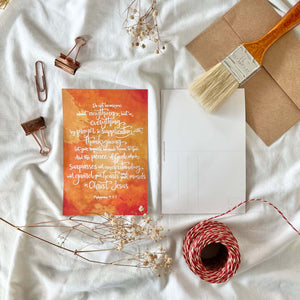 Do not be anxious
about anything, but in
everything
by prayer & supplication with
thanksgiving
let your requests be made known to God.
And the peace of God, which
surpasses all understanding,
will guard your hearts and minds
in Christ Jesus
Philippians 4:6-7